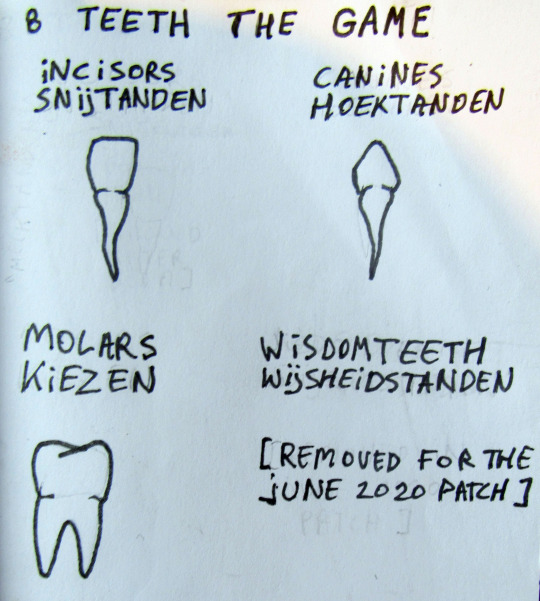 8 TEETH THE GAME
iNCiSORS
SNijTANDEN
CANiNES
HOEKTANDEN
MOLARS
KiEZEN
WiSDOMTEETH
WijSHEiDSTANDEN
[REMOVED FOR THE
jUNE 2020 PATCH]